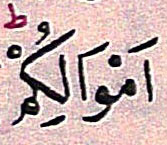 اَمْوَالِكُمْؕ